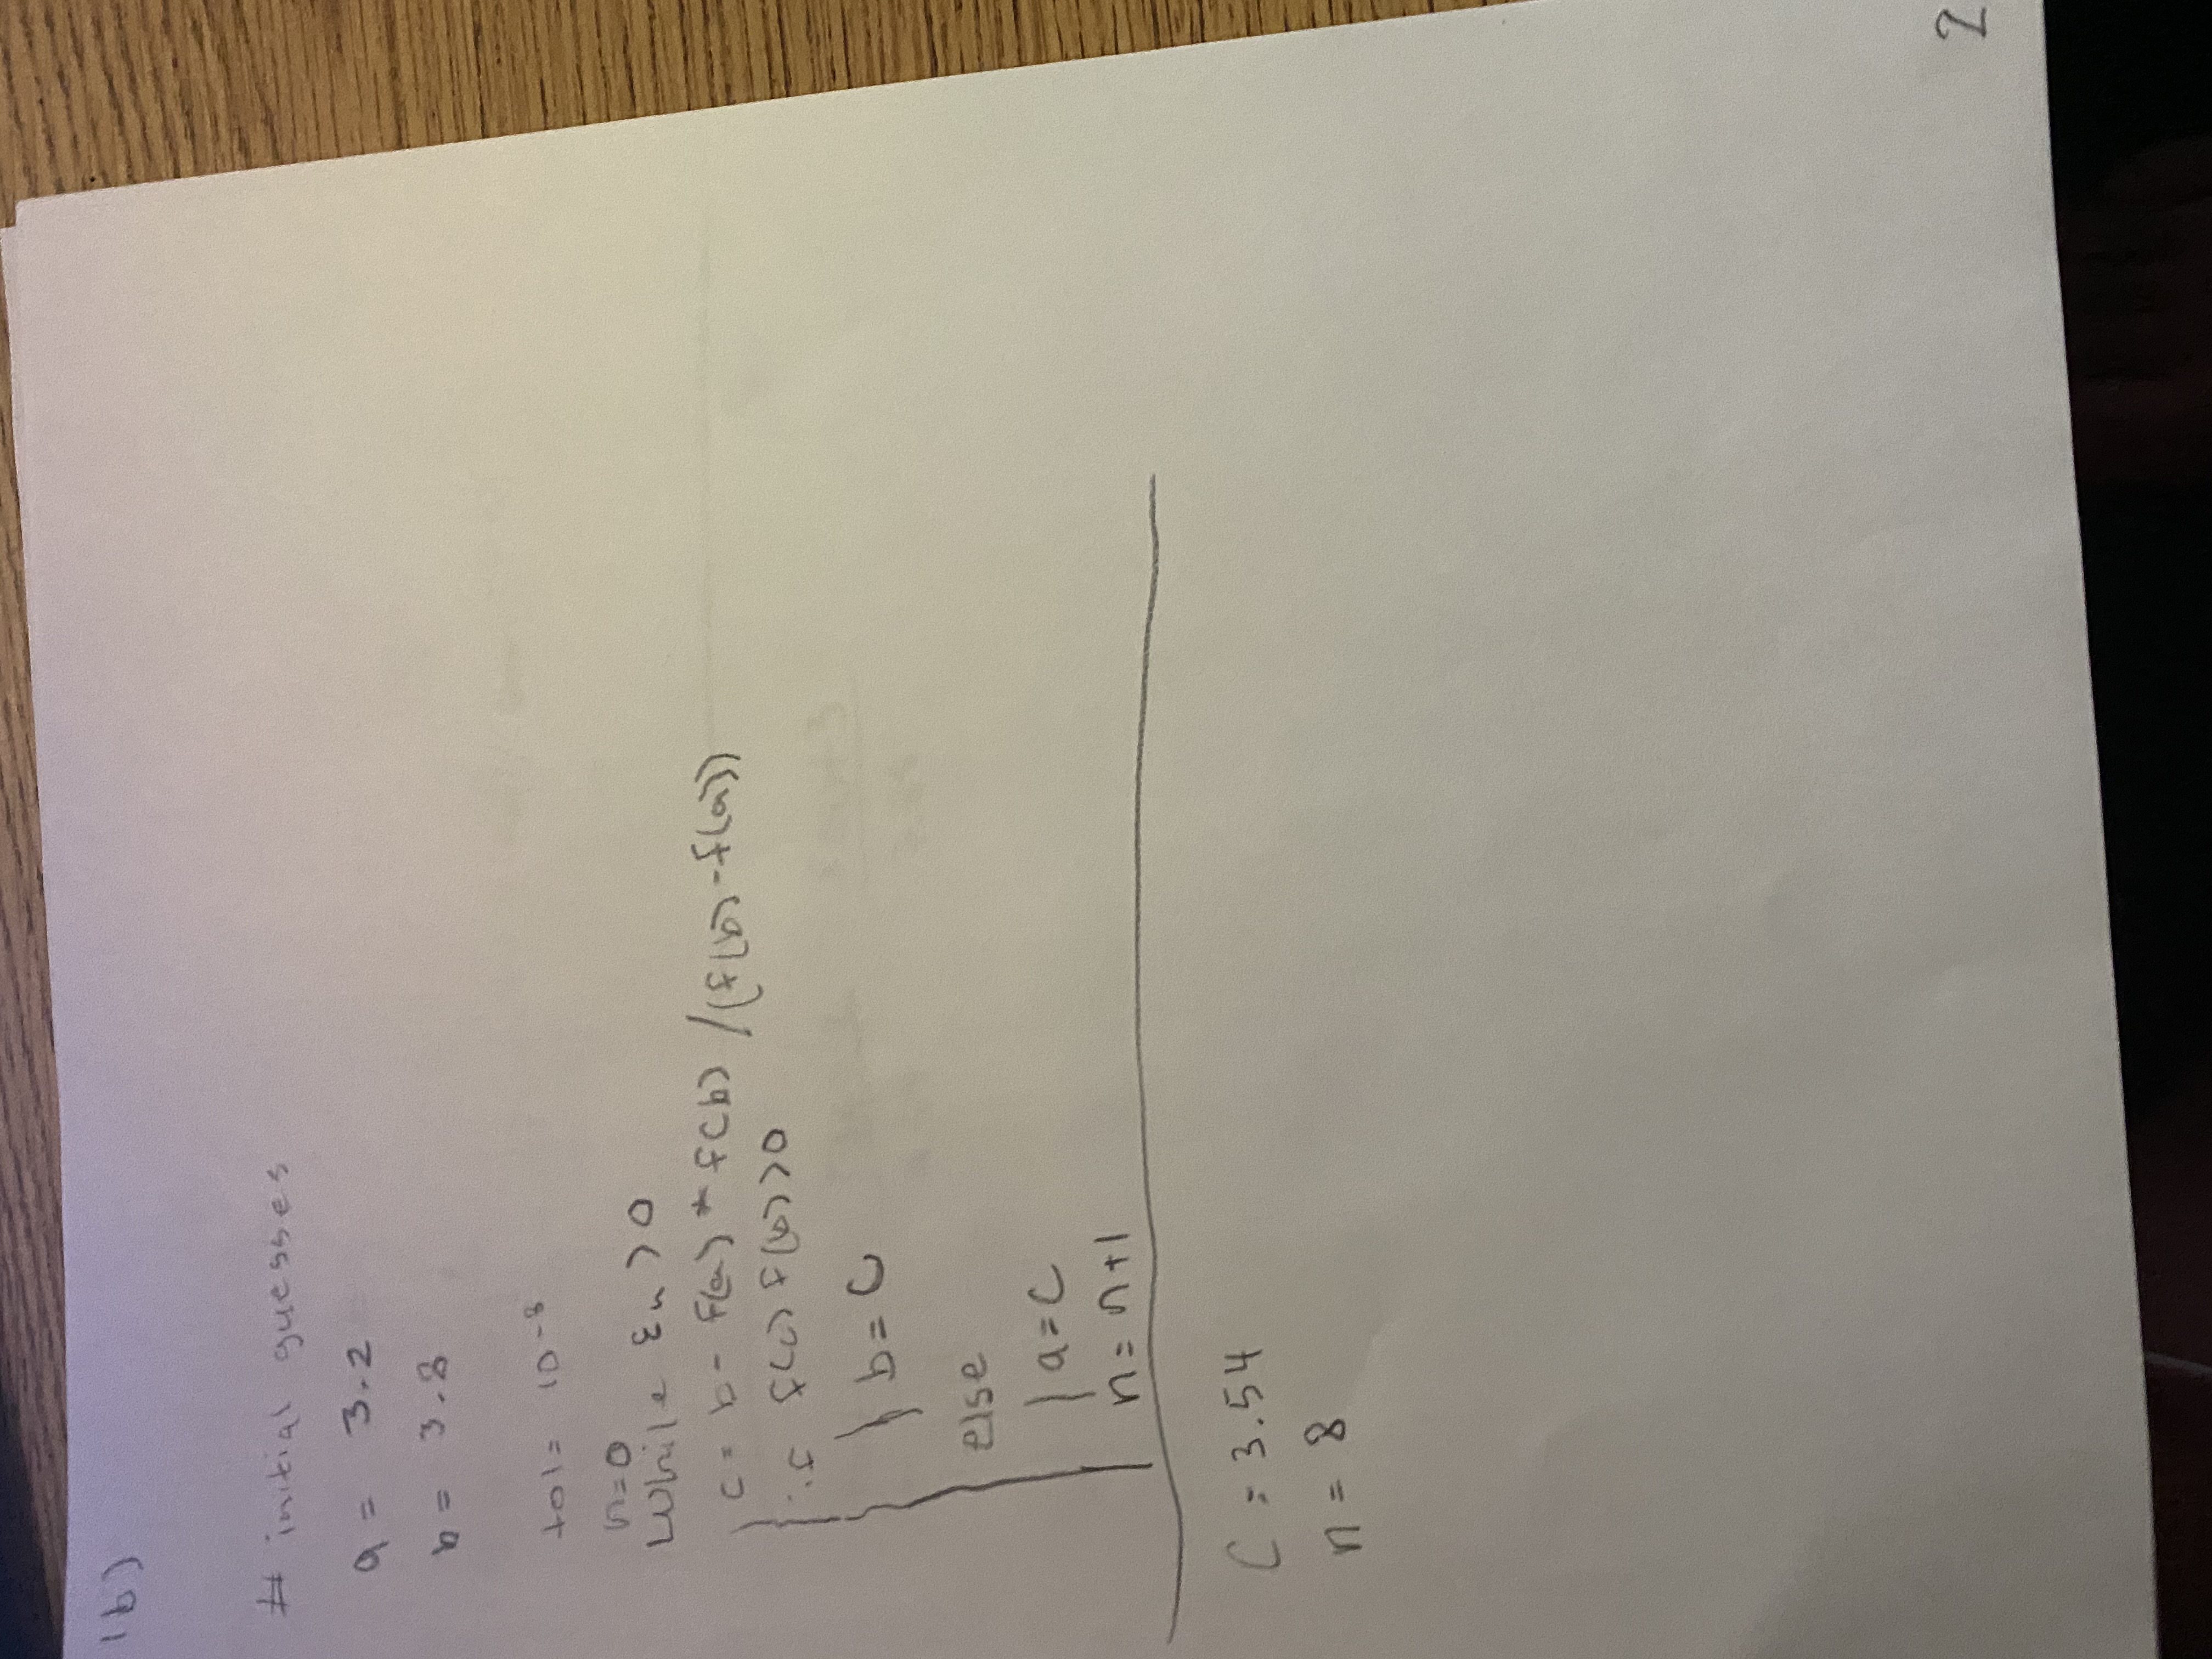 1b)
# initial guesses
a = 3.2
b = 3.8
tol = 10⁻⁸
n=0
While εₙ > 0
c = b - f(a) * f(b) / (f(b) - f(a))
if f(c) f(b) > 0
b = c
else
a = c
n = n+1
C = 3.54
n = 8
2